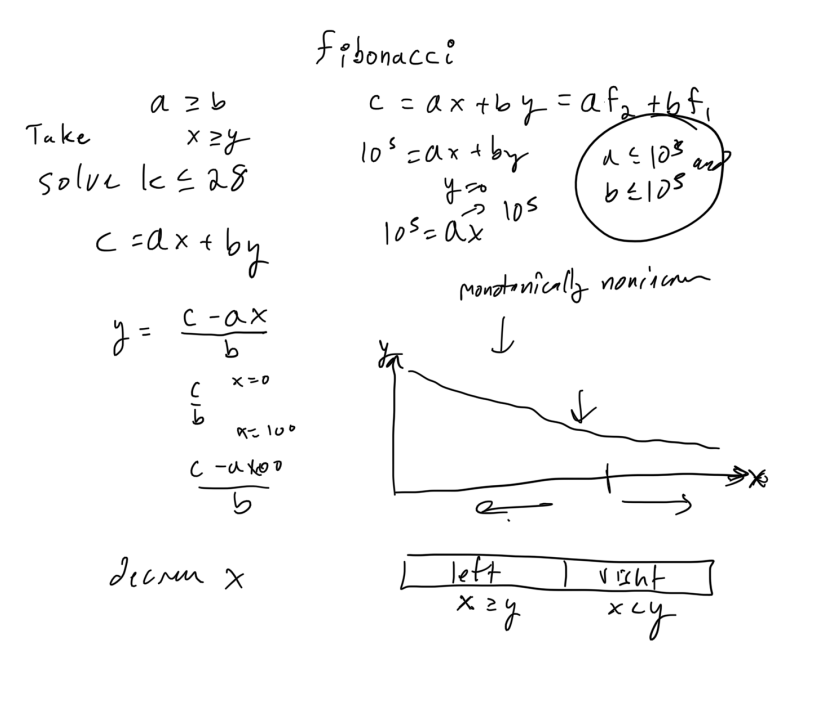 Fibonacci
a ≥ b
Take x ≥ y
solve k ≤ 28
c = ax + by
y = (c - ax) / b
c/b x=0
x=100
(c - ax100) / b
decrem x
c = ax + by = af₂ + bf₁
10⁵ = ax + by
y=0
10⁵ = ax → 10⁵
a ≤ 10⁵ and
b ≤ 10⁵
monotonically
y
x
left right
x ≥ y x < y